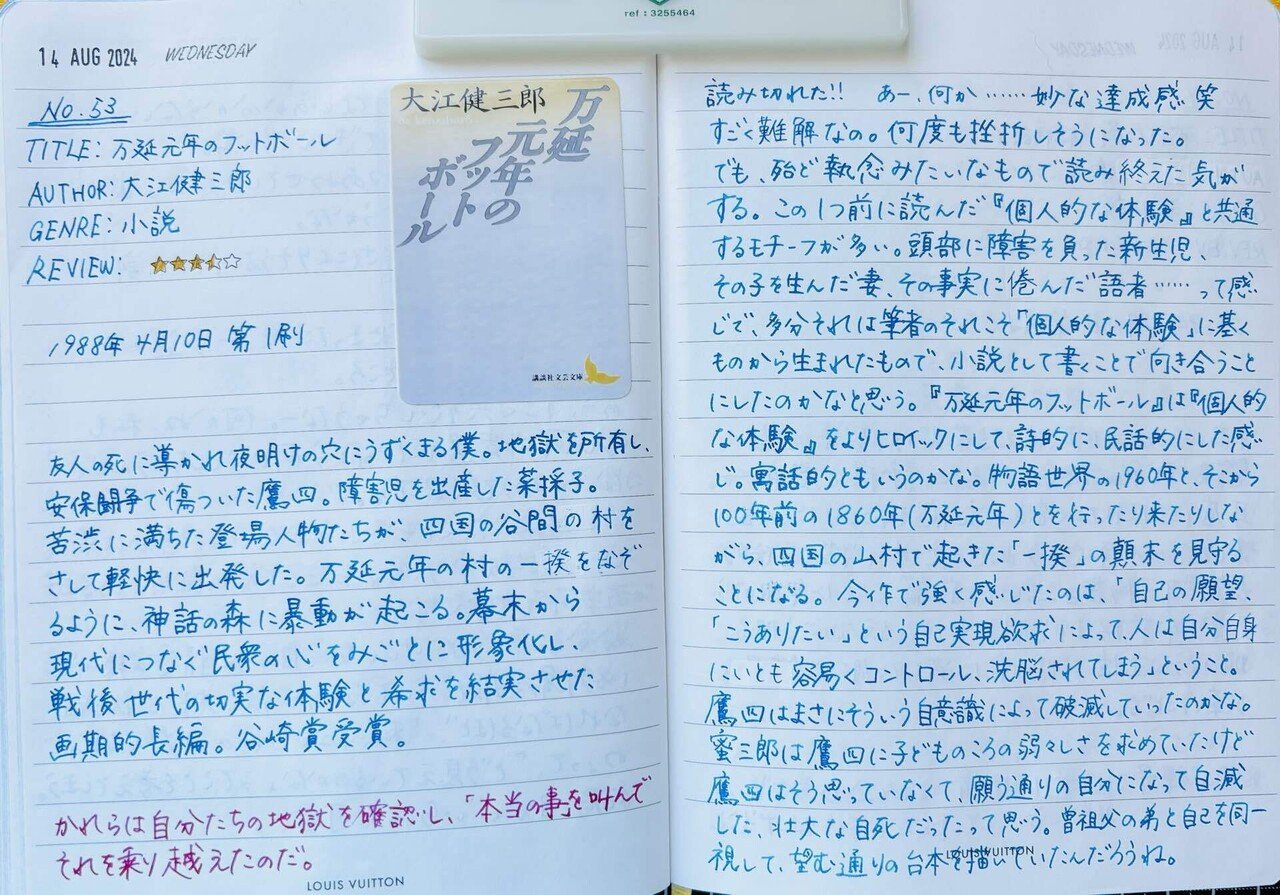 ref : 3255464
14 AUG 2024 WEDNESDAY
No.53
TITLE: 万延元年のフットボール
AUTHOR: 大江健三郎
GENRE: 小説
REVIEW:
1988年4月10日 第1刷
大江健三郎
万延
元年の
フット
ボール
講談社文芸文庫
友人の死に導かれ夜明けの穴にうずくまる僕。地獄を所有し、
安保闘争で傷ついた鷹四。障害児を出産した菜採子。
苦渋に満ちた登場人物たちが、四国の谷間の村を
さして軽快に出発した。万延元年の村の一揆をなぞ
るように、神話の森に暴動が起こる。幕末から
現代につなぐ民衆の心をみごとに形象化し、
戦後世代の切実な体験と希求を結実させた
画期的長編。谷崎賞受賞。
かれらは自分たちの地獄を確認し、「本当の事」を叫んで
それを乗り越えたのだ。
LOUIS VUITTON
読み切れた!! あー、何か……妙な達成感 笑
すごく難解なの。何度も挫折しそうになった。
でも、殆ど執念みたいなもので読み終えた気が
する。この1つ前に読んだ『個人的な体験』と共通
するモチーフが多い。頭部に障害を負った新生児、
その子を生んだ妻、その事実に倦んだ語者……って感
じで、多分それは筆者のそれこそ「個人的な体験」に基く
ものから生まれたもので、小説として書くことで向き合うこと
にしたのかなと思う。『万延元年のフットボール』は『個人的
な体験』をよりヒロイックにして、詩的に、民話的にした感
じ。寓話的ともいうのかな。物語世界の1960年と、そこから
100年前の1860年(万延元年)とを行ったり来たりしな
がら、四国の山村で起きた「一揆」の顛末を見守る
ことになる。今作で強く感じたのは、「自己の願望、
「こうありたい」という自己実現欲求によって、人は自分自身
にいとも容易くコントロール、洗脳されてしまう」ということ。
鷹四はまさにそういう自意識によって破滅していったのかな。
蜜三郎は鷹四に子どものころの弱々しさを求めていたけど
鷹四はそう思っていなくて、願う通りの自分になって自滅
した、壮大な自死だったって思う。曾祖父の弟と自己を同一
視して、望む通りの台本を描いていたんだろうね。
LOUIS VUITTON